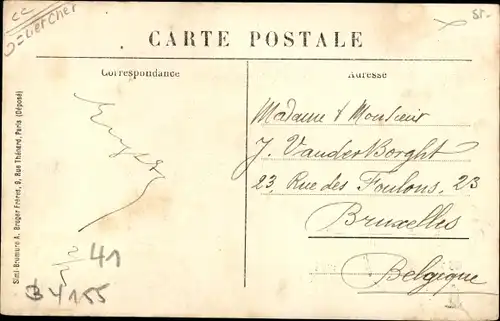 CC
CARTE POSTALE
Correspondance
Adresse
Madame & Monsieur
J. VanderBorght
23, Rue des Foulons, 23
Bruxelles
Belgique
41
B 4155
Simi-Bromure A. Breger Frères, 9, Rue Thénard, Paris (Déposé)